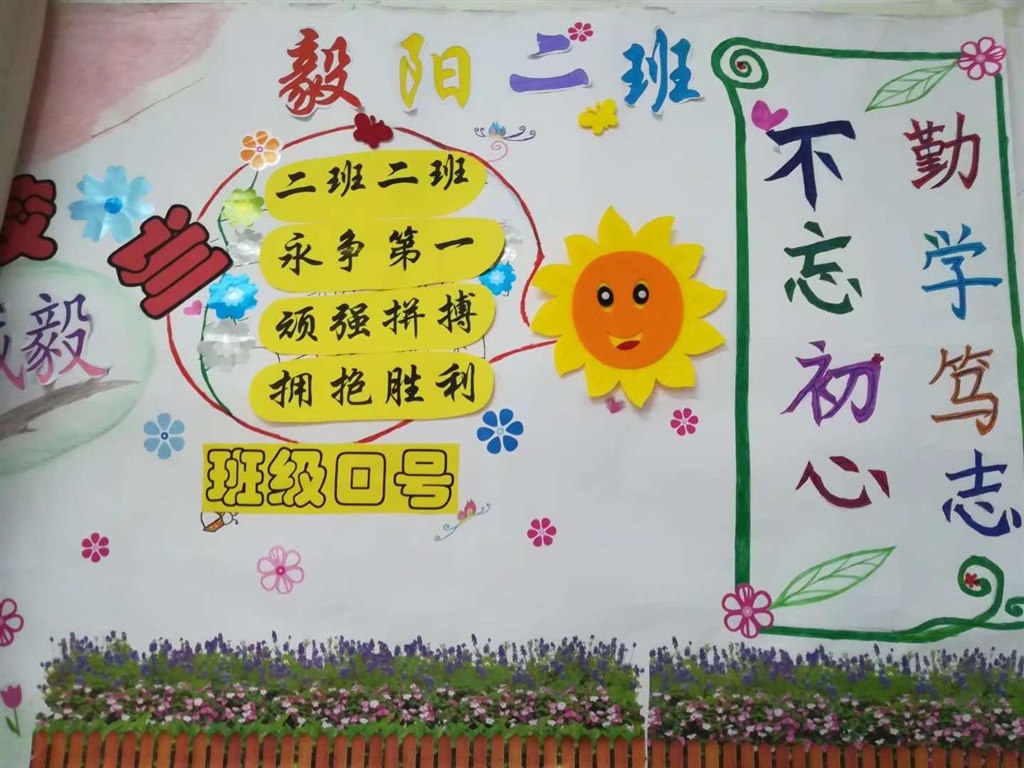 毅阳二班
二班二班
永争第一
顽强拼搏
拥抱胜利
班级口号
勤学笃志
不忘初心
兰
毅